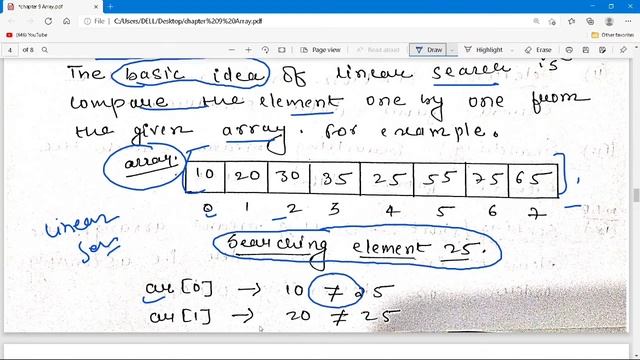 *chapter 9 Array.pdf
C:/Users/DELL/Desktop/chapter%209%20Array.pdf
(346) YouTube
Other favorites
4 of 8
Page view
Read aloud
Draw
Highlight
Erase
The basic idea of linear search is
compare the element one by one from
the given array. For example.
array:
10 20 30 35 25 55 75 65
0 1 2 3 4 5 6 7
linear
Searching element 25.
arr [0] → 10 ≠ 25
arr [1] → 20 ≠ 25